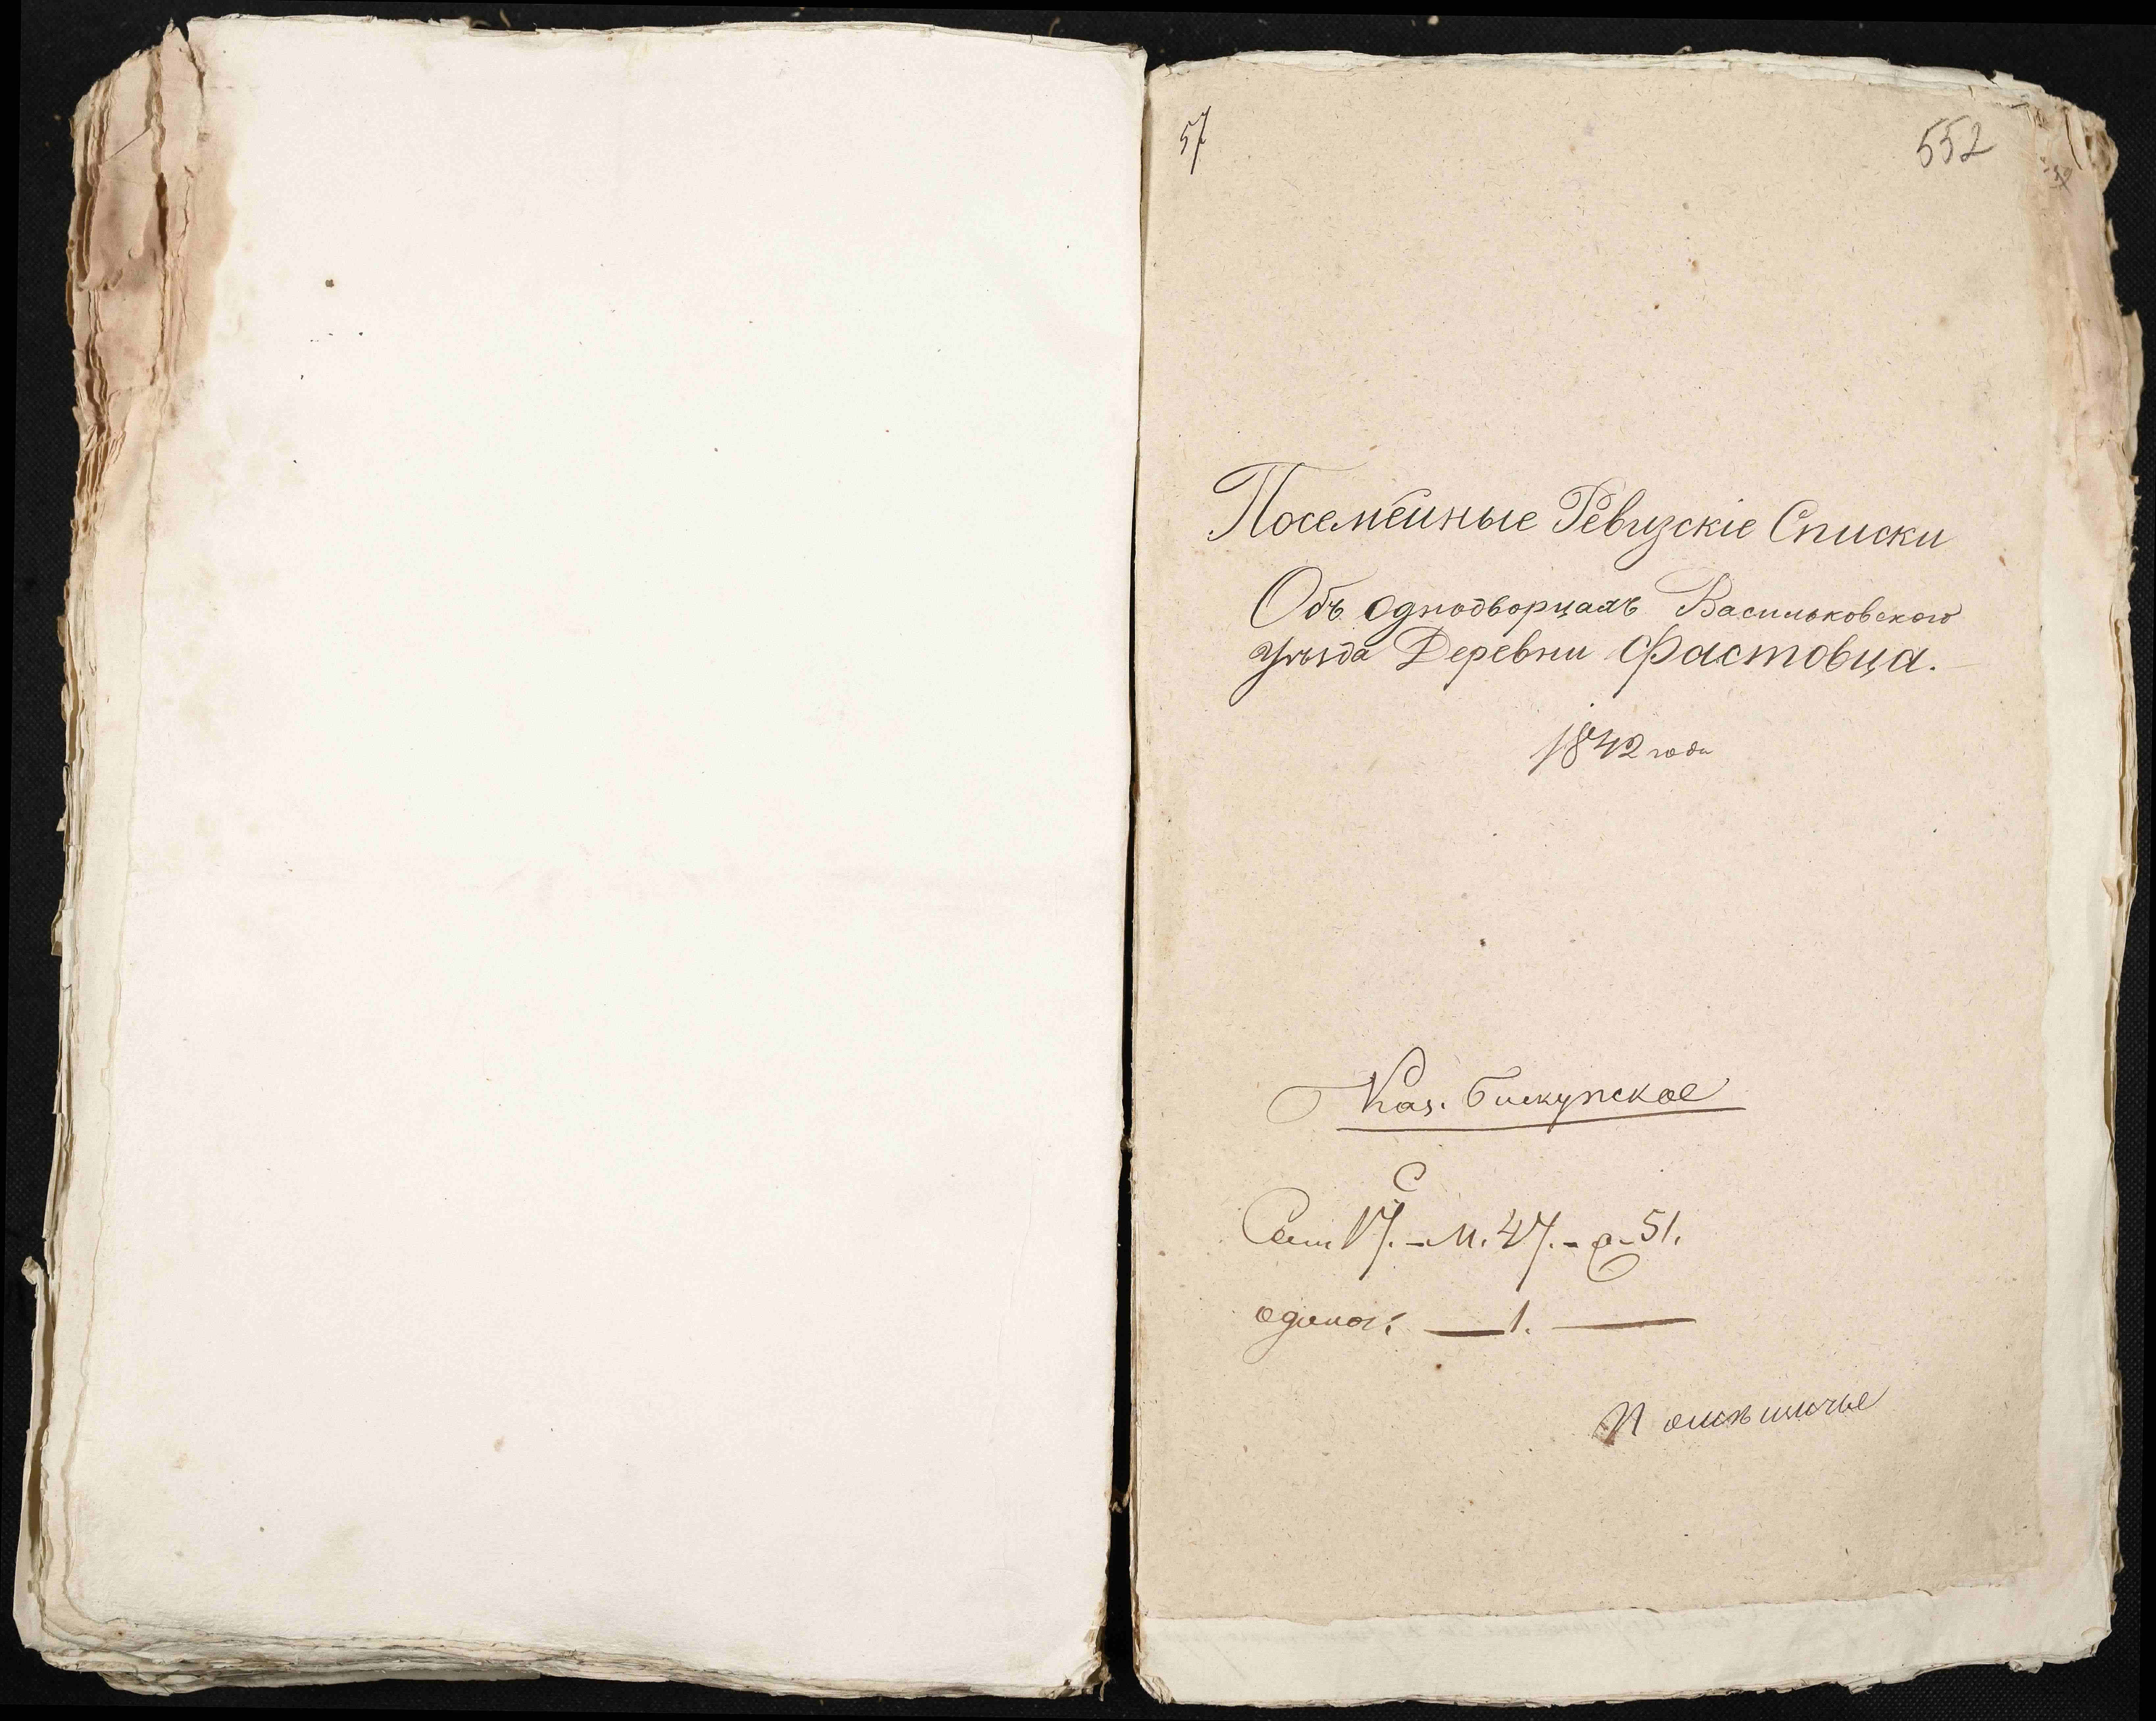 57
552
Посемейные Ревизскіе Списки
Объ однодворцахъ Васильковскаго
уѣзда Деревни Фастовца.
1842 года
Каз. Бискупское
Сем 17. – м. 47. – ж. 51.
одинок: — 1. —
Помѣщичье